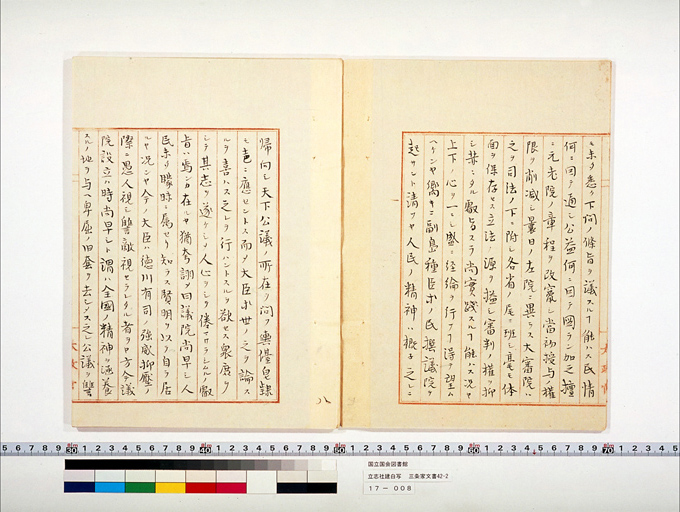 モ未タ悉ク下問ノ條旨ヲ議スルヿ能ハス民情
何ニ因テ通シ公益何ニ因テ圖ラン加之擅
ニ元老院ノ章程ヲ改竄シ當初授与ノ權
限ヲ削減シ曩日ノ左院ニ異ラス大審院ハ
之ヲ司法ノ下ニ附シ各省ノ尾ニ班シ毫モ体
面ヲ保存セス立法ノ源ヲ搤シ審判ノ權ヲ抑
シ其タル叡旨スラ尚實践スルヿ能ハス况ヤ
上下ノ心ヲ一ニシ盛ニ経綸ヲ行フヿヲ得ヲ望ム
ヘケンヤ嚮キニ副島種臣ホノ民撰議院ヲ
起サント請フヤ人民ノ精神ハ振テ之レニ
帰向シ天下公議ノ所在ヲ問ヲ輿儓皂隷
モ ニ應セントス而ヲ大臣ホ世ヲ之ヲ論ス
ルヲ喜ハス之レヲ行ハントスルヲ欲セス衆庶ヲ
シテ其志ヲ遂ケシメ人心ヲシテ倦マサラシムルノ叡
旨ハ焉ンカ在ルヤ猶夸詡メ曰議院尚早シ人
民未タ矇昧ニ属セリト知ラス賢明ヲ以テ自ラ居
ルヤ况ンヤ今ノ大臣ハ徳川有司ノ強敵抑壓ノ
際ニ愚人視シ讐敵視セラレタル者ヲヤ方今議
院設立ハ時尚早シト謂ハ全國ノ精神ヲ涵養
スルノ地ヲ与ヘ卑屈ノ旧套ヲ去シメス之レ公議ヲ讐
八
国立国会図書館
立志社建白写 三条家文書42-2
17-008